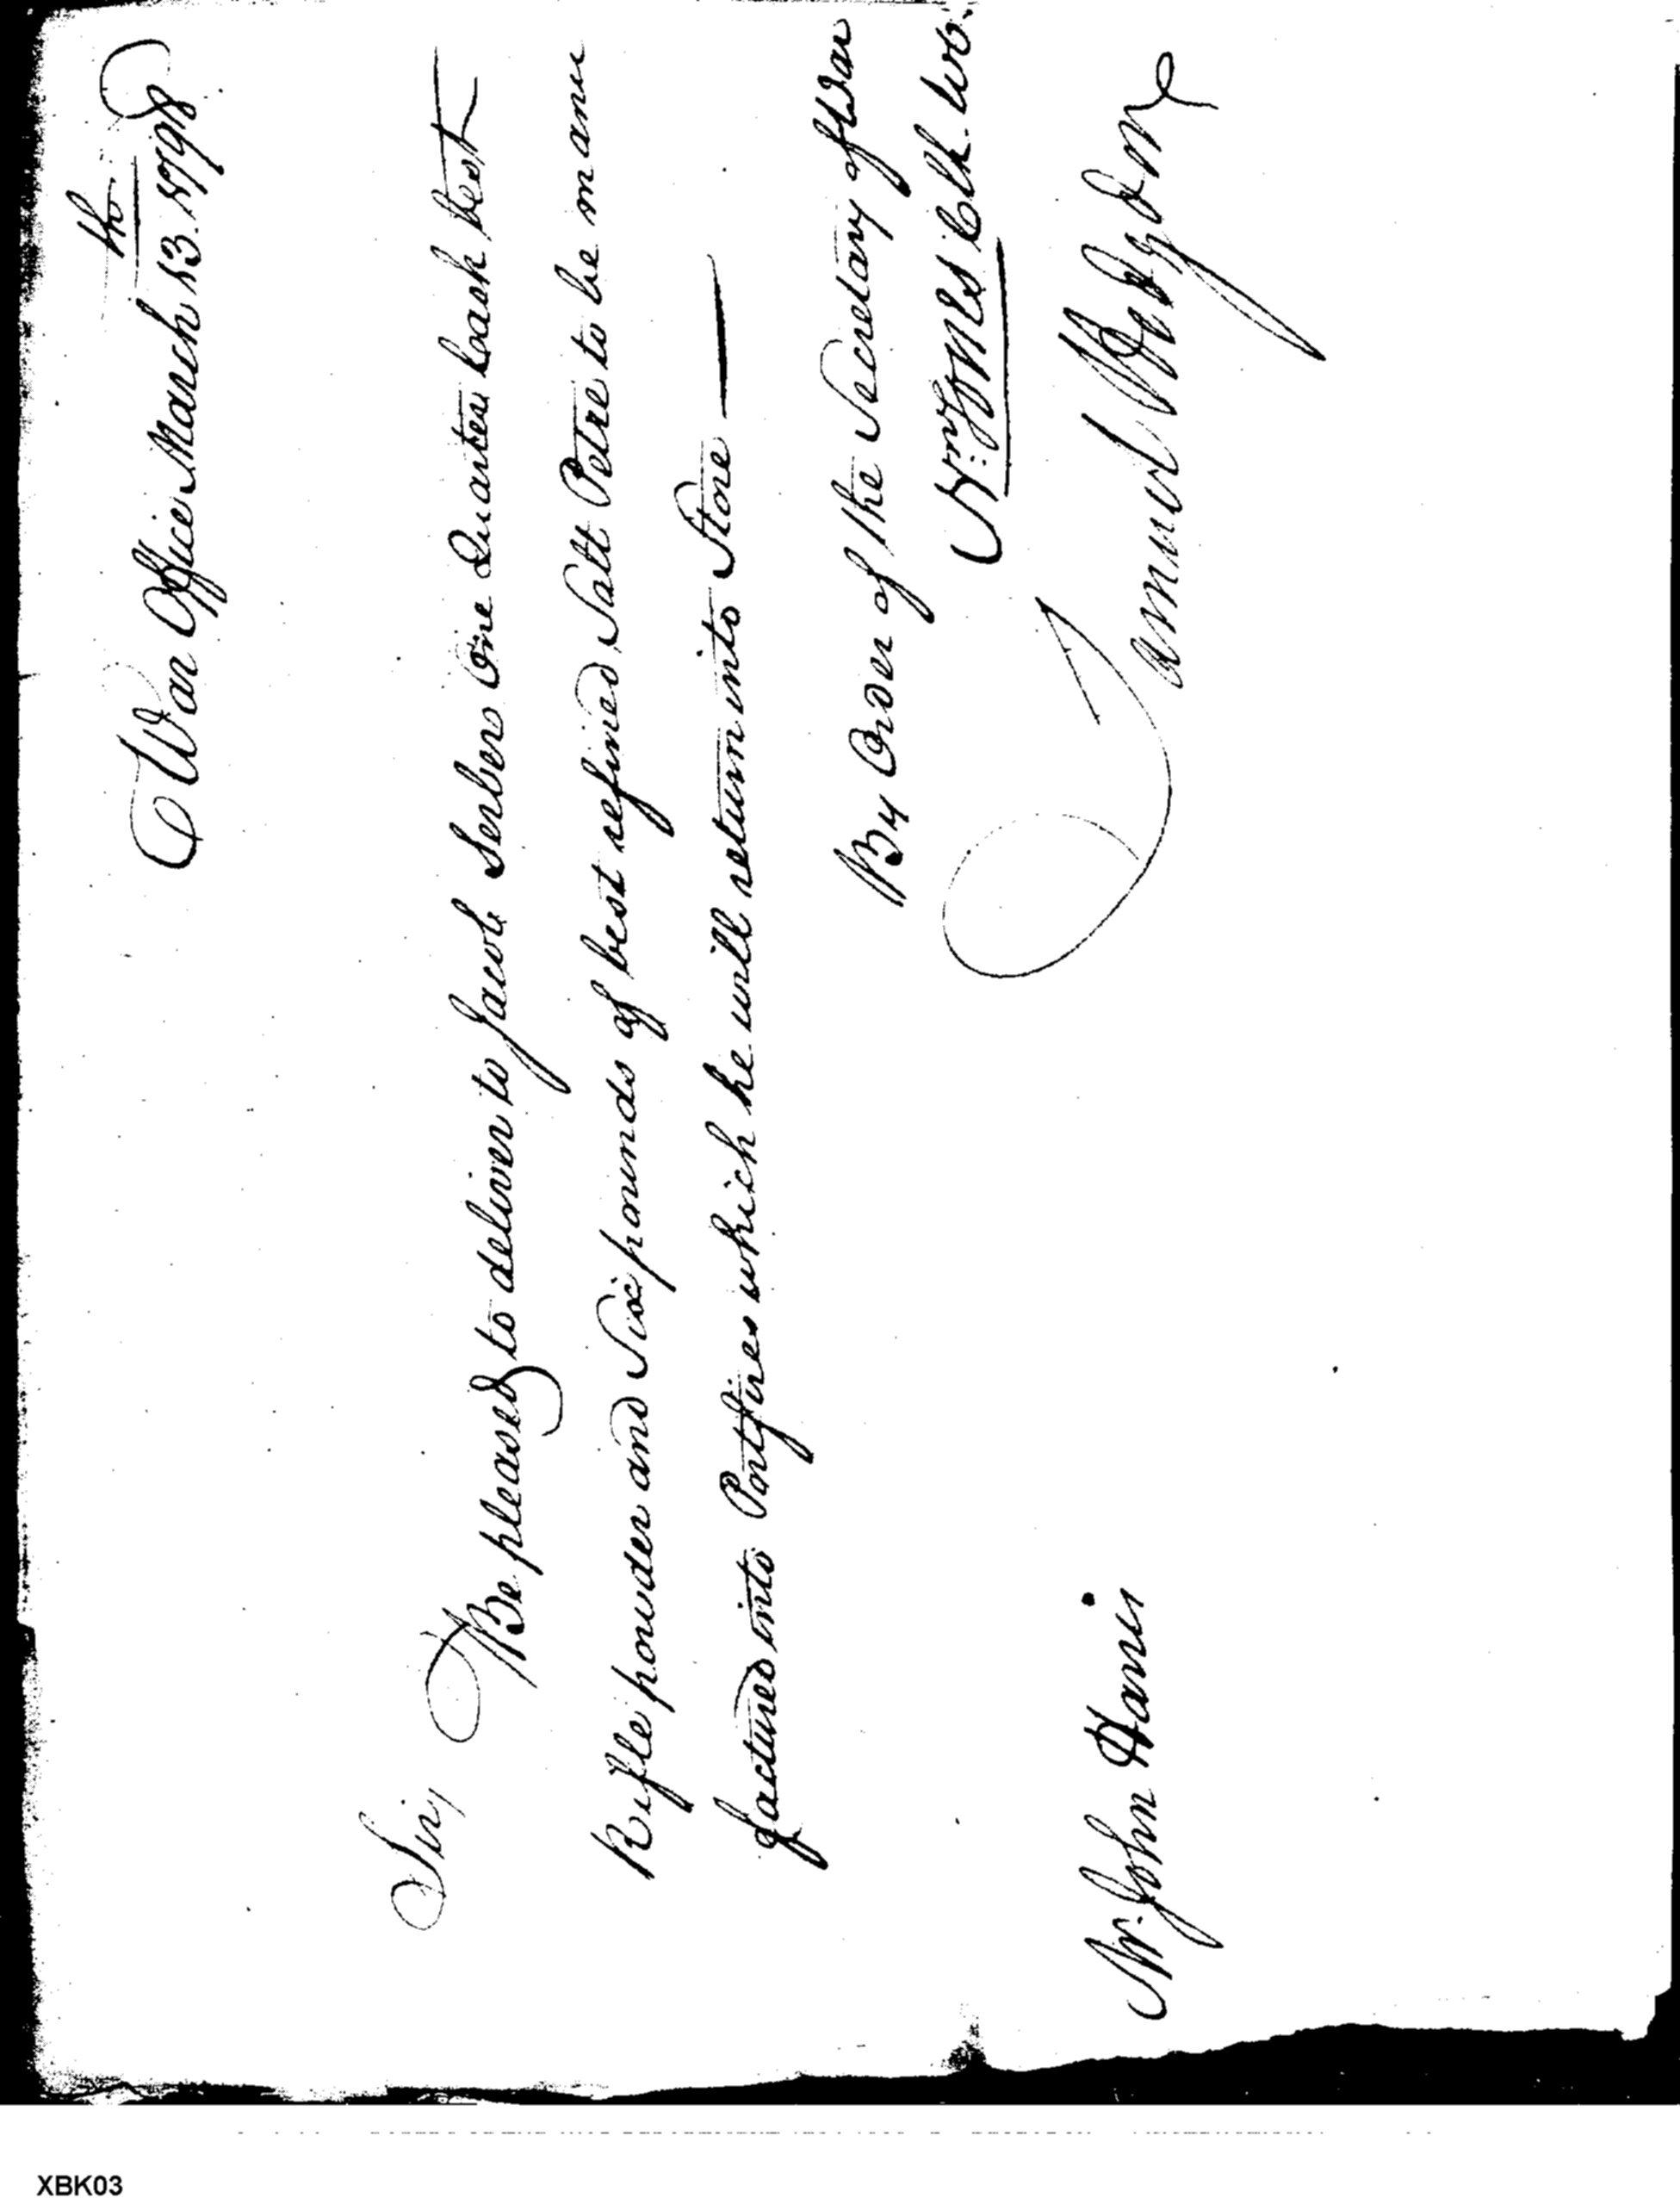 War Office March 13th. 1798
Sir,
Be pleased to deliver to Jacob Serber One Quarter Cask best
Rifle powder and Six pounds of best refined Salt Petre to be manu
factured into Portfires which he will return into Store —
By Order of the Secretary of War
Wm. Jones Clk. W.O.
Samuel Hodgdon
Mr. John Harris
XBK03